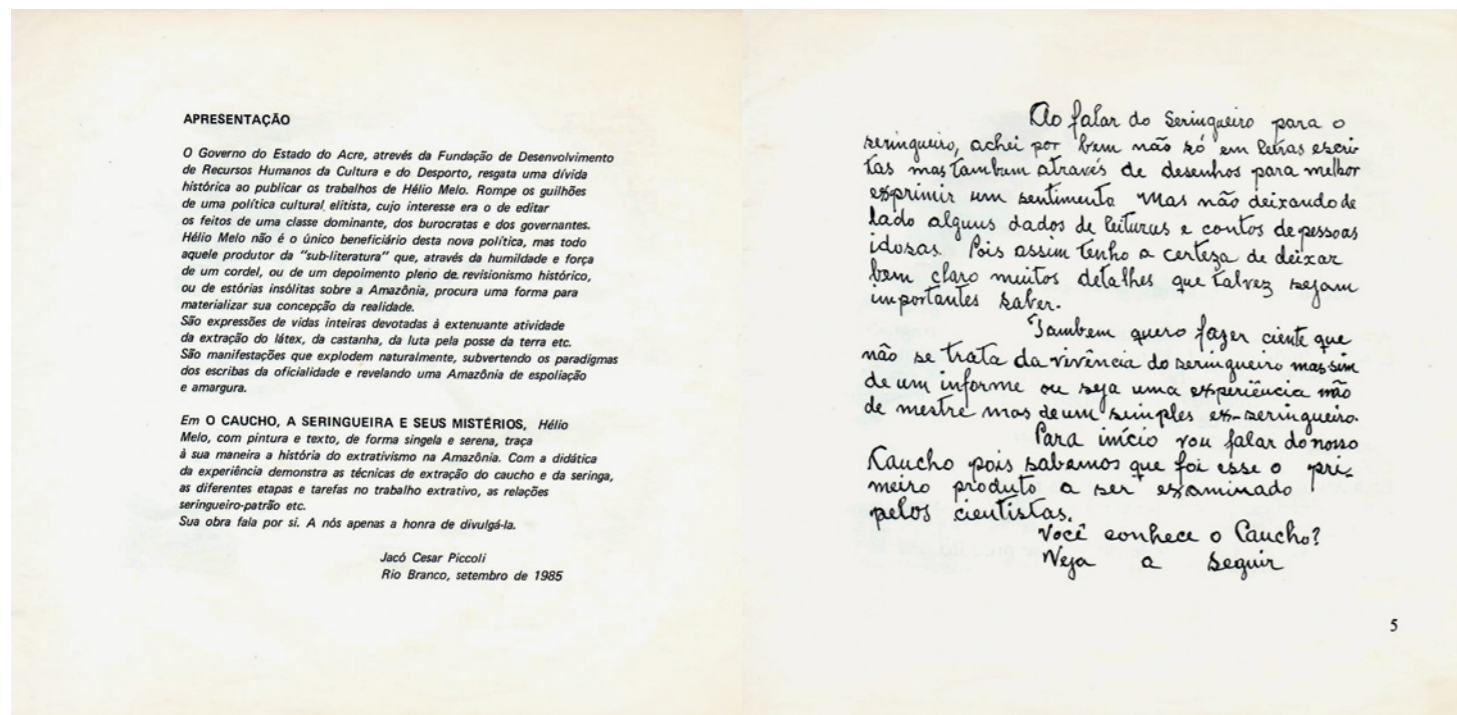 APRESENTAÇÃO
O Governo do Estado do Acre, atrevés da Fundação de Desenvolvimento
de Recursos Humanos da Cultura e do Desporto, resgata uma dívida
histórica ao publicar os trabalhos de Hélio Melo. Rompe os guilhões
de uma política cultural elitista, cujo interesse era o de editar
os feitos de uma classe dominante, dos burocratas e dos governantes.
Hélio Melo não é o único beneficiário desta nova política, mas todo
aquele produtor da "sub-literatura" que, através da humildade e força
de um cordel, ou de um depoimento pleno de revisionismo histórico,
ou de estórias insólitas sobre a Amazônia, procura uma forma para
materializar sua concepção da realidade.
São expressões de vidas inteiras devotadas à extenuante atividade
da extração do látex, da castanha, da luta pela posse da terra etc.
São manifestações que explodem naturalmente, subvertendo os paradigmas
dos escribas da oficialidade e revelando uma Amazônia de espoliação
e amargura.
Em O CAUCHO, A SERINGUEIRA E SEUS MISTÉRIOS, Hélio
Melo, com pintura e texto, de forma singela e serena, traça
à sua maneira a história do extrativismo na Amazônia. Com a didática
da experiência demonstra as técnicas de extração do caucho e da seringa,
as diferentes etapas e tarefas no trabalho extrativo, as relações
seringueiro-patrão etc.
Sua obra fala por si. A nós apenas a honra de divulgá-la.
Jacó Cesar Piccoli
Rio Branco, setembro de 1985
Ao falar do Seringueiro para o
seringueiro, achei por bem não só em letras escri-
tas mas tambem através de desenhos para melhor
exprimir um sentimento Mas não deixando de
lado alguns dados de leituras e contos de pessoas
idosas. Pois assim tenho a certeza de deixar
bem claro muitos detalhes que talvez sejam
importantes saber.
Tambem quero fazer ciente que
não se trata da vivência do seringueiro mas sim
de um informe ou seja uma experiência não
de mestre mas de um simples ex-seringueiro.
Para início vou falar do nosso
Caucho pois sabemos que foi esse o pri-
meiro produto a ser examinado
pelos cientistas.
Você conhece o Caucho?
Veja a seguir
5